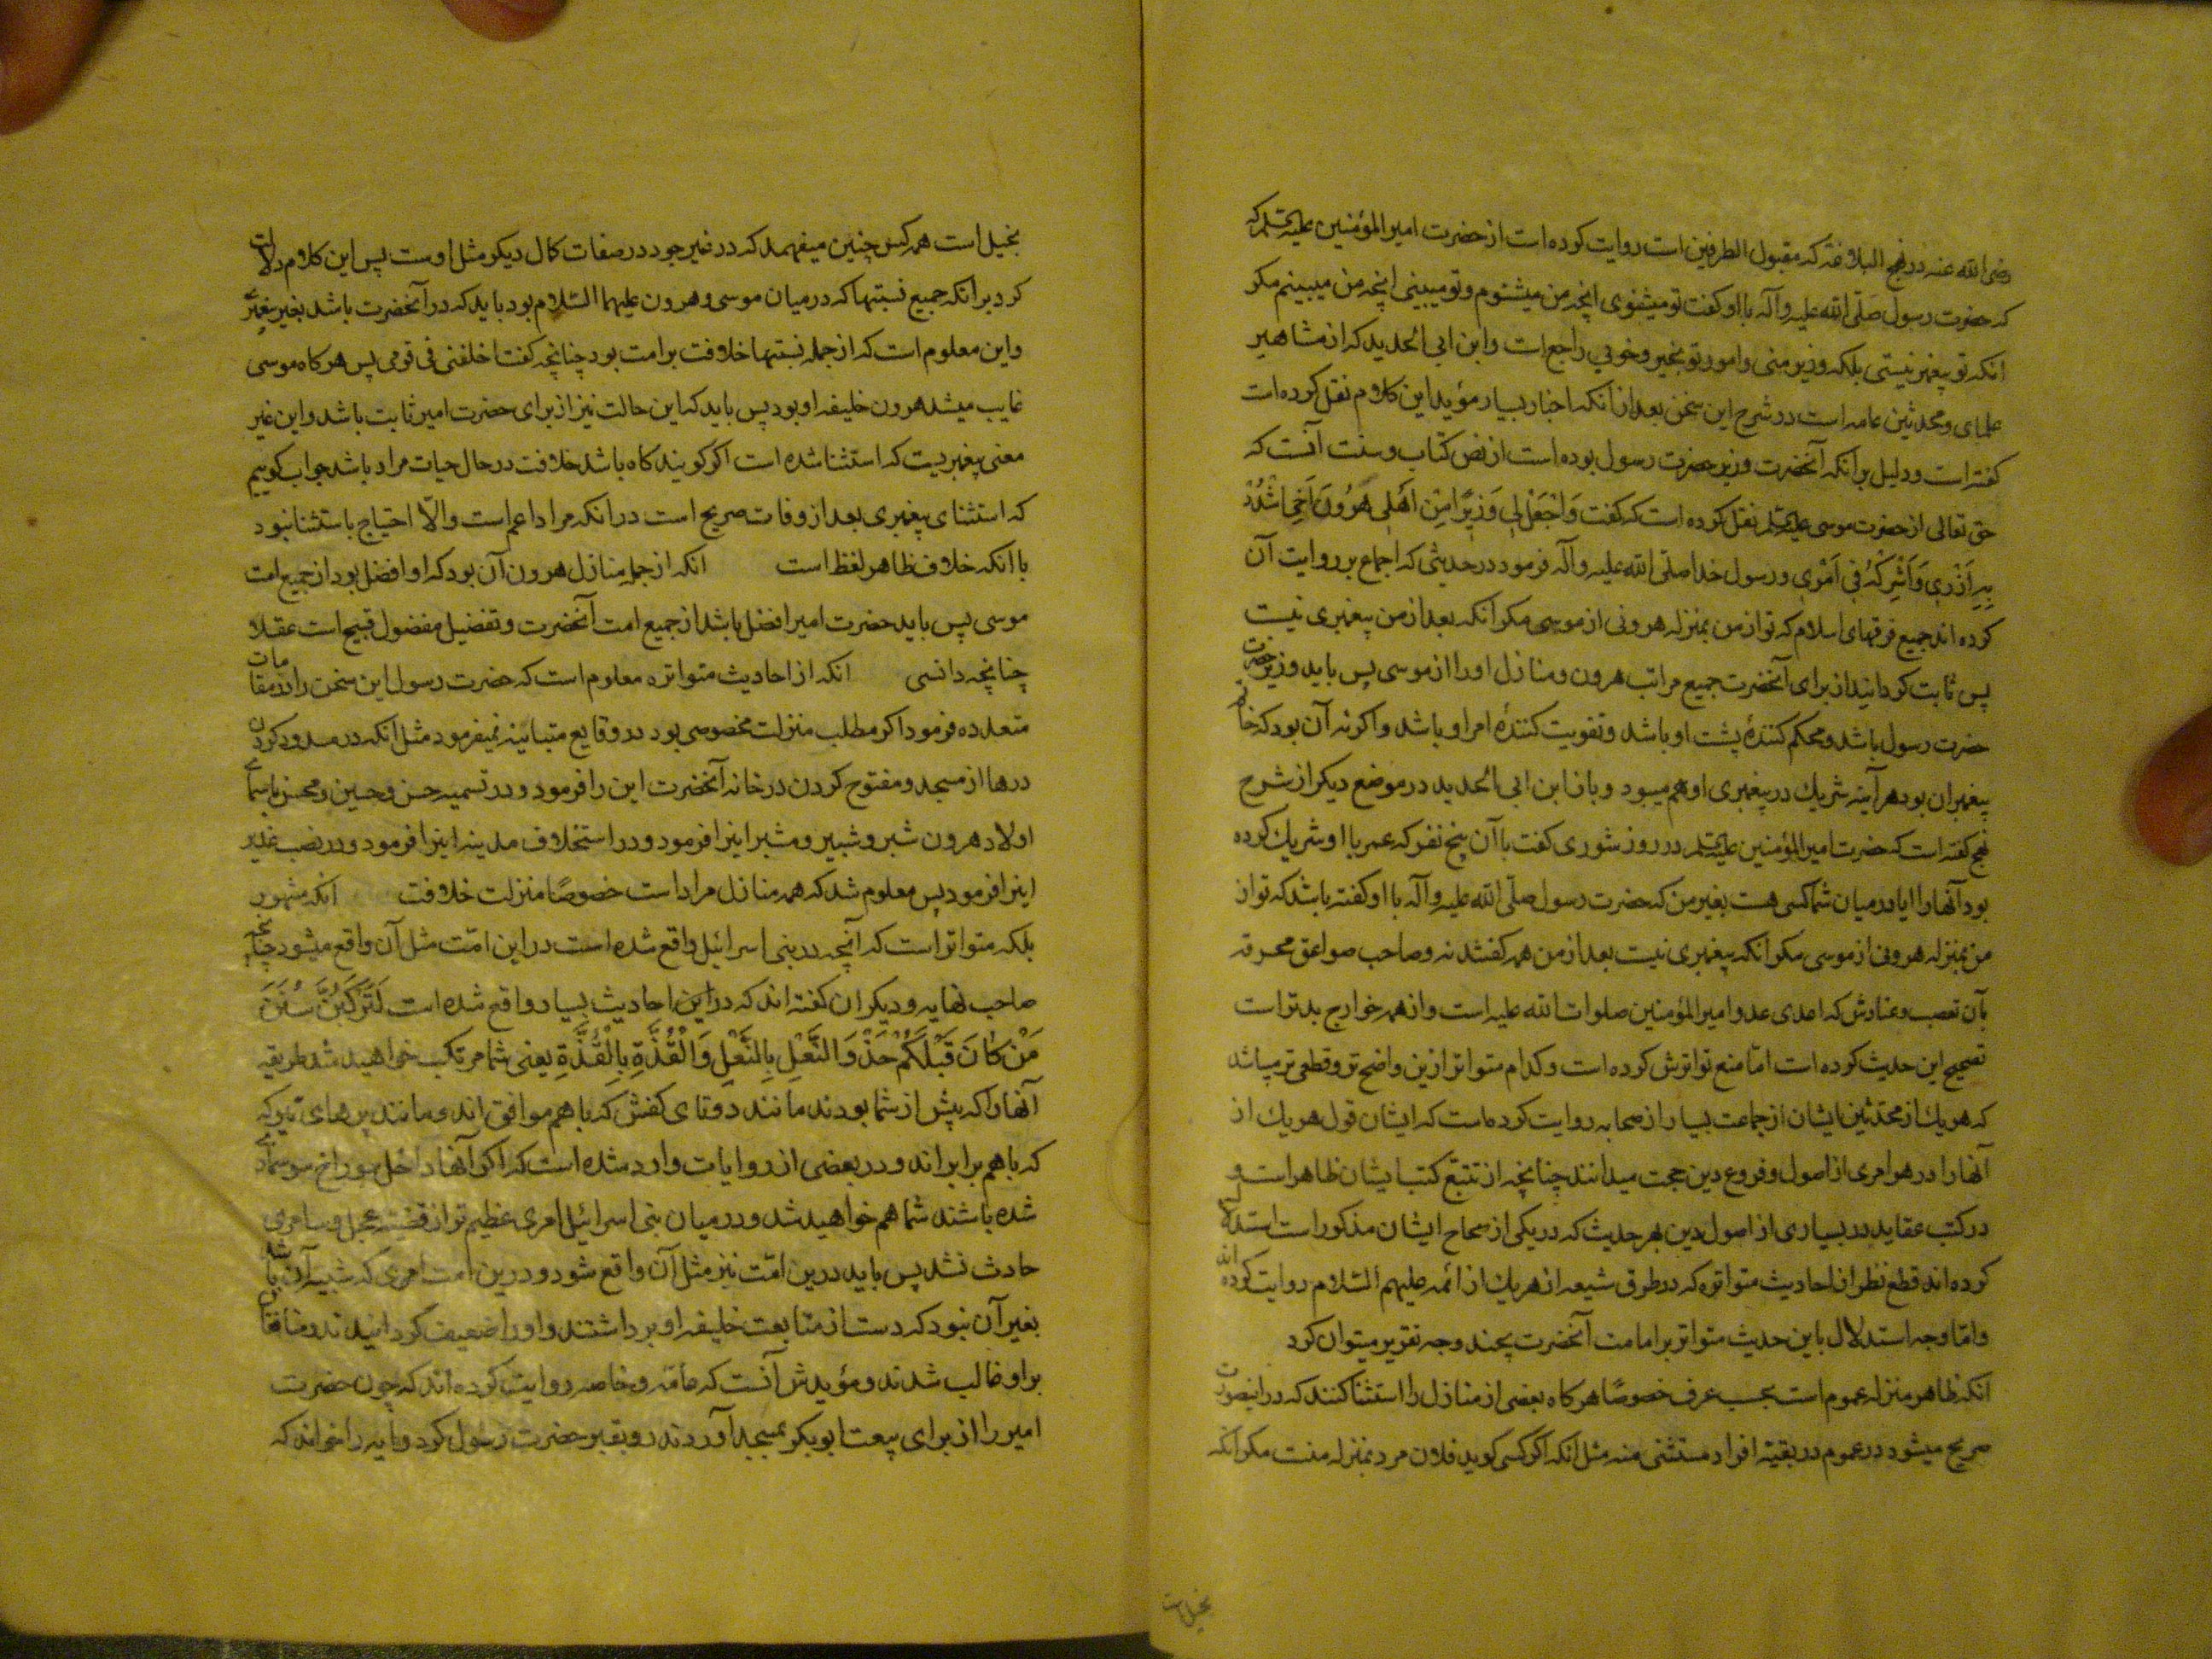 رضی الله عنه در نهج البلاغه که مقبول الطرفین است روایت کرده است از حضرت امیر المؤمنین علیه السلام که
که حضرت رسول صلّی الله علیه وآله با او کفت تو میشنوی انچه من میشنوم و تو میبینی انچه من میبینم مکر
انکه تو پیغمبر نیستی بلکه وزیر منی و امور تو بخیر وخوبی راجع است وابن ابی الحدید که از مشاهیر
علمای ومحدثین عامه است در شرح این سخن بعد از آنکه اخبار بسیار مؤید این کلام نقل کرده است
کفته است ودلیل بر آنکه آنحضرت وزیر حضرت رسول بوده است از نص کتاب وسنت آنست که
حق تعالی از حضرت موسی علیه السلام نقل کرده است که کفت وَاجْعَلْ لِي وَزِيرًا مِنْ اَهْلِي هَرُونَ اَخِي اشْدُدْ
بِهِ اَزْرِي وَاَشْرِكْهُ فِي اَمْرِي ورسول خدا صلّی الله علیه وآله فرمود در حدیثی که اجماع بر روایت آن
کرده اند جمیع فرقهای اسلام که تو از من بمنزله هرونی از موسی مکر انکه بعد از من پیغمبری نیست
پس ثابت کردانید از برای آنحضرت جمیع مراتب هرون ومنازل اورا از موسی پس باید وزیر حضرت
حضرت رسول باشد ومحکم کنندهٔ پشت او باشد وتقویت کنندهٔ امر او باشد واکر نه آن بود که خاتم
پیغمبران بود هر آینه شریك در پیغمبری او هم میبود وباز ابن ابی الحدید در موضع دیکر از شرح
نهج کفته است که حضرت امیر المؤمنین علیه السلام در روز شوری کفت با آن پنج نفر که عمر با او شریك کرده
بود آنهارا ایا در میان شما کسی هست بغیر من که حضرت رسول صلّی الله علیه وآله با او کفته باشد که تو از
من بمنزله هرونی از موسی مکر انکه پیغمبری نیست بعد از من همه کفتند نه وصاحب صواعق محرقه
بآن تعصب وعنادش که اعدی عدو امیر المؤمنین صلوات الله علیه است واز همه خوارج بدتر است
تصحیح این حدیث کرده است امّا منع تواترش کرده است وکدام متواتر ازین واضح تر وقطعی تر میباشد
که هریك از محدّثین ایشان از جماعت بسیار از صحابه روایت کرده است که ایشان قول هریك از
آنهارا در هر امری از اصول وفروع دین حجت میدانند چنانچه از تتبّع کتب ایشان ظاهر است و
در کتب عقاید در بسیاری از اصول دین بهر حدیث که در یکی از صحاح ایشان مذکور است استدلال
کرده اند قطع نظر از احادیث متواتره که در طرق شیعه از هریك از ائمه علیهم السّلام روایت کرده اند
وامّا وجه استدلال باین حدیث متواتر بر امامت آنحضرت بچند وجه تقریر میتوان کرد
انکه ظاهر منزله عموم است بحسب عرف خصوصًا هرکاه بعضی از منازل را استثنا کنند که در اینصورت
صریح میشود در عموم در بقیّه افراد مستثنی منه مثل انکه اکر کسی کوید فلان مرد بمنزله منست مکر انکه
بخیل است
بخیل است همه کس چنین میفهمد که در غیر جود در صفات کمال دیکر مثل اوست پس این کلام دلالت
کرد بر انکه جمیع نسبتها که در میان موسی وهرون علیهما السّلام بود باید که در آنحضرت باشد بغیر پیغمبری
واین معلوم است که از جمله نسبتها خلافت بر امت بود چنانچه کفت اخلفنی فی قومی پس هرکاه موسی
غایب میشد هرون خلیفه او بود پس باید که این حالت نیز از برای حضرت امیر ثابت باشد واین غیر
معنی پیغمبریست که استثنا شده است اکر کویند کاه باشد خلافت در حال حیات مراد باشد جواب کوییم
که استثنای پیغمبری بعد از وفات صریح است در انکه مراد اعم است والّا احتیاج باستثنا نبود
با انکه خلاف ظاهر لفظ است انکه از جمله منازل هرون آن بود که او افضل بود از جمیع امت
موسی پس باید حضرت امیر افضل باشد از جمیع امت آنحضرت وتفضیل مفضول قبیح است عقلا
چنانچه دانسی انکه از احادیث متواتره معلوم است که حضرت رسول این سخن را در مقامات
متعدده فرمود اکر مطلب منزلت مخصوصی بود در وقایع متباینه نمیفرمود مثل انکه در مسدود کردن
درها از مسجد ومفتوح کردن در خانه آنحضرت این را فرمود ودر تسمیه حسن وحسین ومحسن باسمای
اولاد هرون شبر وشبیر ومشبر اینرا فرمود ودر استخلاف مدینه اینرا فرمود ودر نصب غدیر
اینرا فرمود پس معلوم شد که همه منازل مراد است خصوصًا منزلت خلافت انکه مشهور
بلکه متواتر است که آنچه در بنی اسرائیل واقع شده است در این امّت مثل آن واقع میشود چنانچه
صاحب نهایه ودیکران کفته اند که در این احادیث بسیار واقع شده است لَتَرْكَبُنَّ سُنَنَ
مَنْ كَانَ قَبْلَكُمْ حَذْوَ النَّعْلِ بِالنَّعْلِ وَالْقُذَّةِ بِالْقُذَّةِ یعنی شما مرتکب خواهید شد طریقه
آنهارا که پیش از شما بودند مانند دوتای کفش که باهم موافق اند ومانند پرهای تیر که
که باهم برابر اند ودر بعضی از روایات وارد شده است که اکر آنها داخل سوراخ سوسماری
شده باشند شما هم خواهید شد ودر میان بنی اسرائیل امری عظیم تر از قضیّه عجل وسامری
حادث نشد پس باید درین امّت نیز مثل آن واقع شود ودرین امت امری که شبیه آن باشد
بغیر آن نبود که دست از متابعت خلیفه او برداشتند واورا ضعیف کردانیدند ومنافقان
بر او غالب شدند ومؤیدش آنست که عامّه وخاصه روایت کرده اند که چون حضرت
امیر را از برای بیعت ابوبکر بمسجد آوردند رو بقبر حضرت رسول کرد و آیه را خواند که